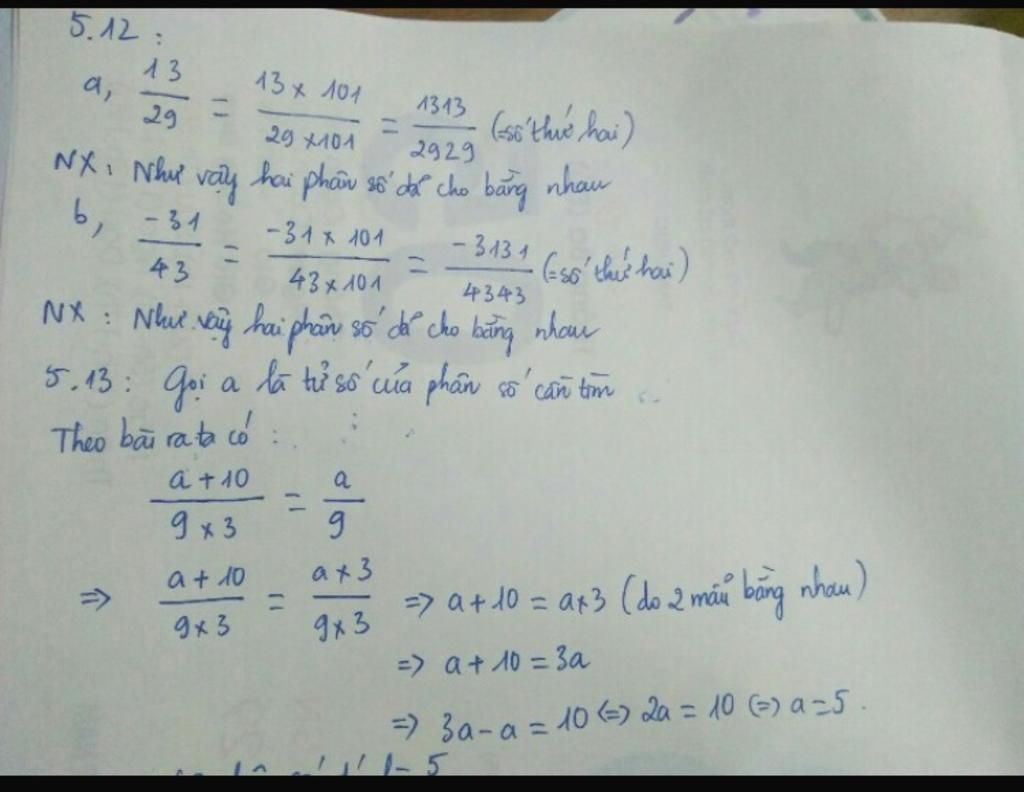 5.12 :
a, 13/29 = 13 x 101/29 x 101 = 1313/2929 (= số thứ hai)
NX : Như vậy hai phân số đã cho bằng nhau
b, -31/43 = -31 x 101/43 x 101 = -3131/4343 (= số thứ hai)
NX : Như vậy hai phân số đã cho bằng nhau
5.13 : Gọi a là tử số của phân số cần tìm
Theo bài ra ta có :
a + 10/9 x 3 = a/9
=> a + 10/9 x 3 = a x 3/9 x 3 => a + 10 = a x 3 (do 2 mẫu bằng nhau)
=> a + 10 = 3a
=> 3a - a = 10 <=> 2a = 10 <=> a = 5.